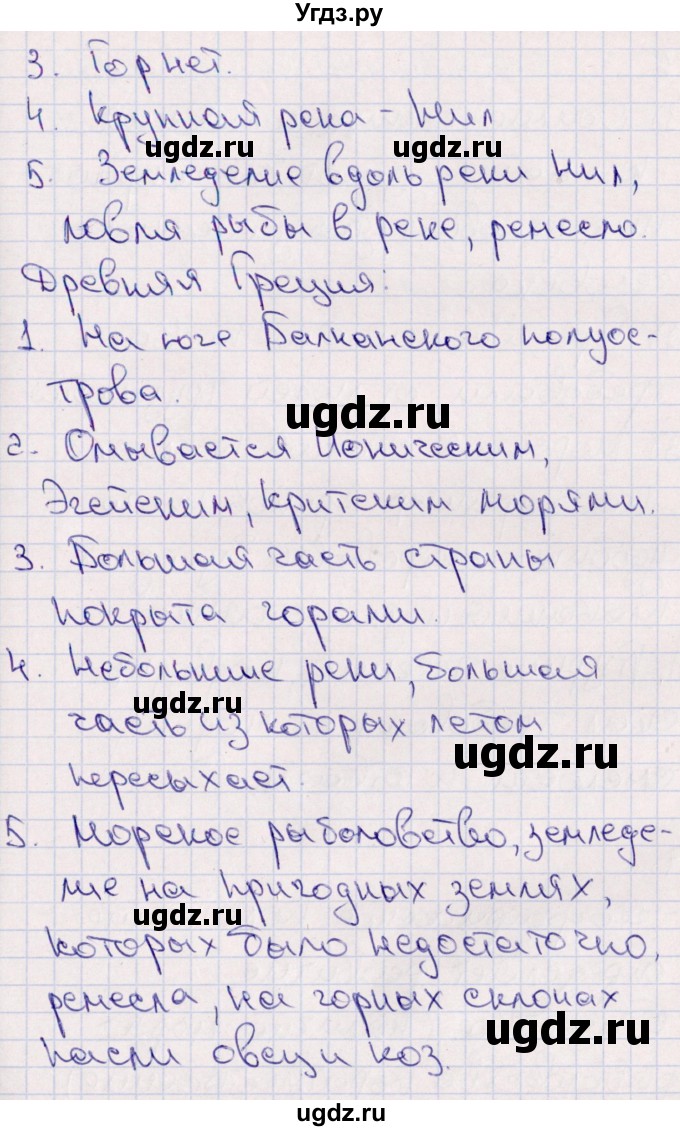 Угдз.ру
3. Гор нет.
4. Крупная река - Нил
ugdz.ru ugdz.ru
5. Земледелие вдоль реки Нил,
ловля рыбы в реке, ремесло.
Древняя Греция:
1. На юге Балканского полуос-
трова.
ugdz.ru
2. Омывается Ионическим,
Эгейским, Критским морями.
3. Большая часть страны
покрыта горами.
4. Небольшие реки, большая
ugdz.ru
часть из которых летом
ugdz.ru
пересыхает.
5. Морское рыболовство, земледе-
лие на пригодных землях,
ugdz.ru
которых было недостаточно,
ремесла, на горных склонах
ugdz.ru
пасли овец и коз.
ugdz.ru